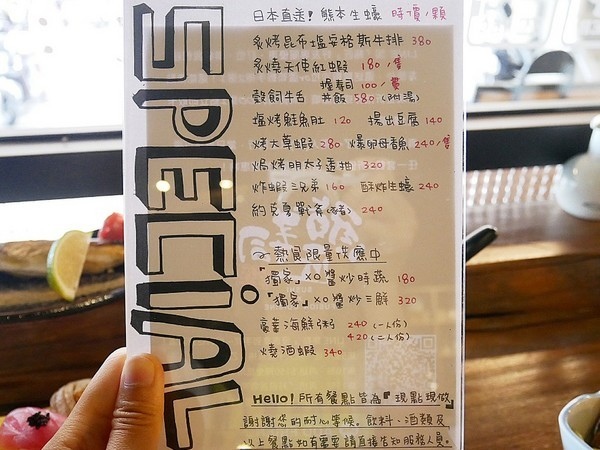 SPECiAL
日本直送! 熊本生蠔 時價/顆
炙烤昆布塩安格斯牛排 380
炙燒天使紅蝦 180/隻
握壽司 100/貫
穀飼牛舌 丼飯 580 (附湯)
塩烤鮭魚肚 120 揚出豆腐 140
烤大草蝦 280 爆卵母香魚 240/隻
焗烤明太子 320
炸蝦三兄弟 160 酥炸生蠔 240
約克夏戰斧(豬) 240
熱食限量供應中
「獨家」XO醬炒時蔬 180
「獨家」XO醬炒三鮮 320
豪華海鮮粥 240 (一人份)
420 (二人份)
燒酒蝦 340
Hello! 所有餐點皆為『現點現做』
謝謝您的耐心等候。飲料、酒類及
以上餐點如有需要請直接告知服務人員。